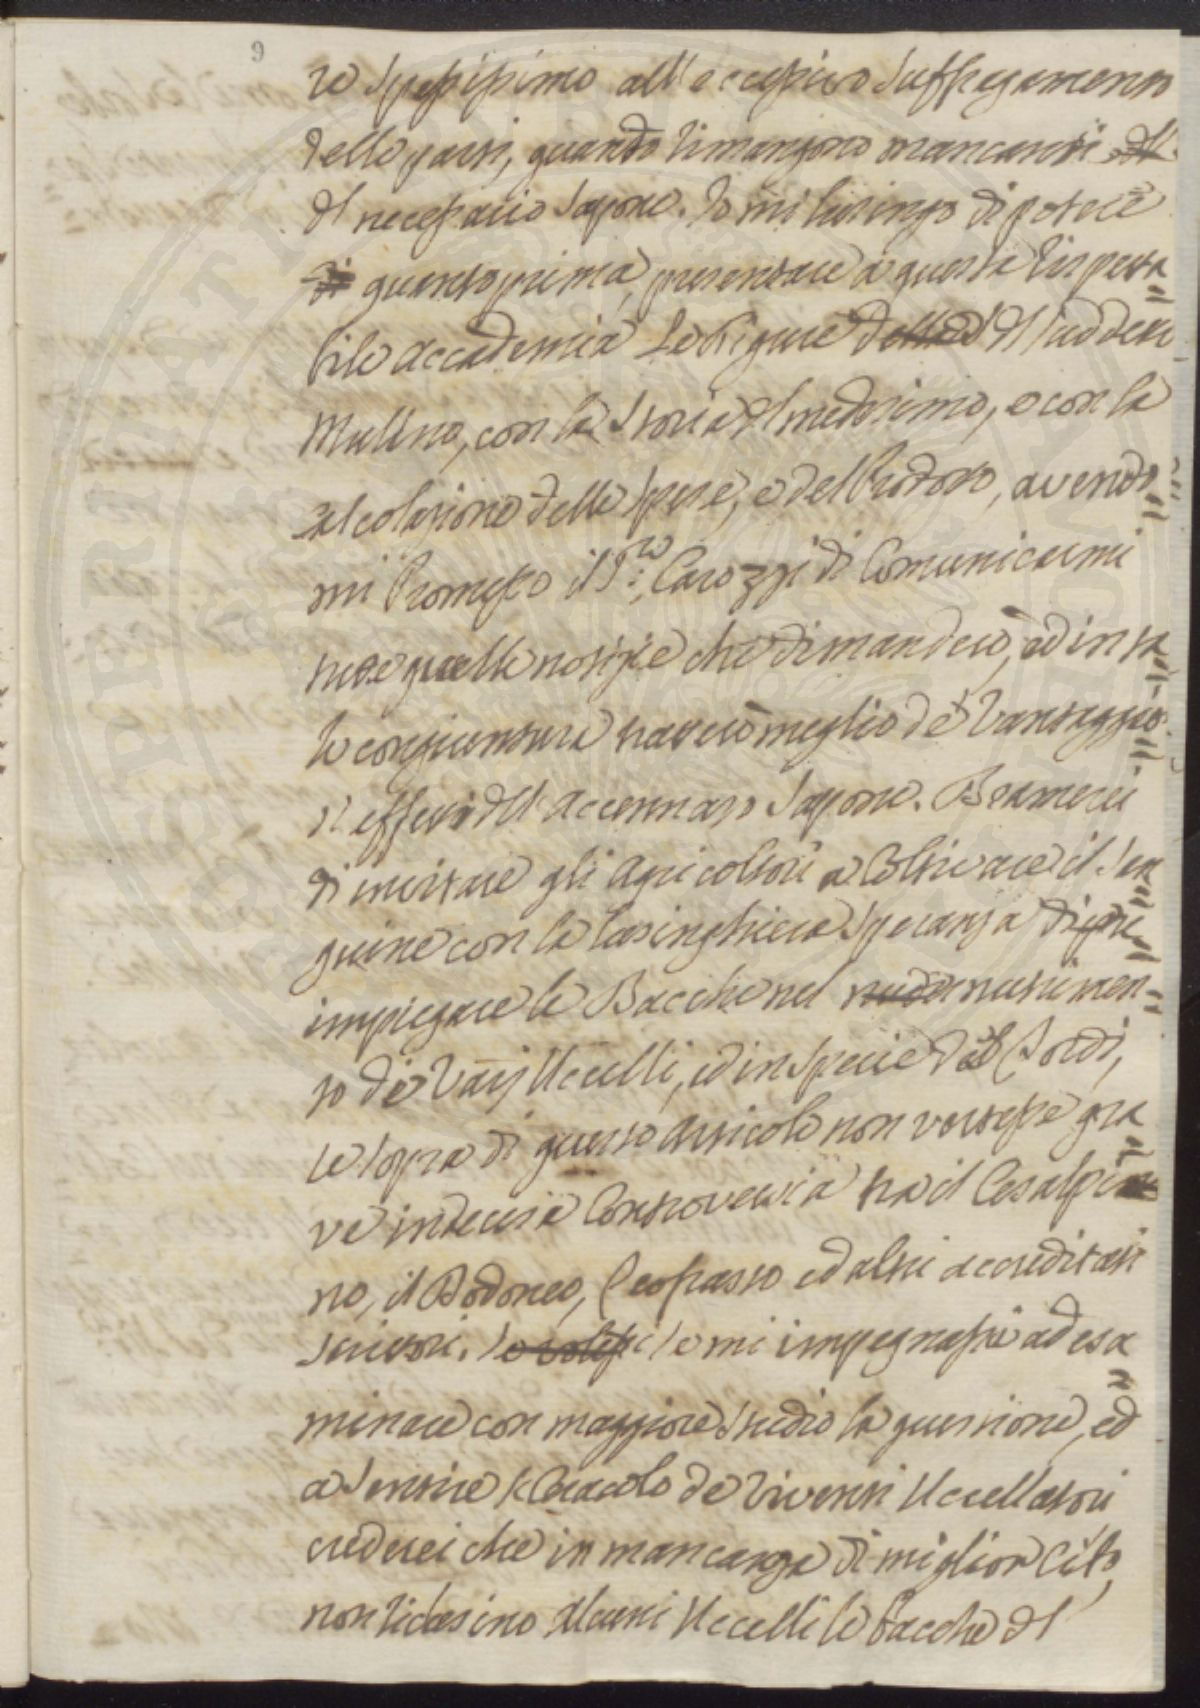 9
re spessissimo all'eccessivo suffregamento
delle parti, quando rimangono mancanti del
del necessario sapone. Io mi lusingo di potere
di quanto prima, presentare a questa rispetta
bile Accademia le Figure della del sudde:
Mulino, con la storia del medesimo, e con la
calcolazione delle spese, e del Prodotto, avendo
mi Promesso il S:re Carozzi di Comunicarmi
tutte quelle notizie che dimanderò, ed in ta
le congiuntura trattero meglio de' Vantaggio
si effetti dell'accennato sapone. Bramerei
d'invitare gli Agricoltori a Coltivare il San
guine con la lusinghiera speranza di
impiegare le Bacche nel nutrimen
to de' Varj Uccelli, ed in specie del Tordi,
se sopra di questo Articolo non vertesse gra
ve indecisa Controversia tra il Cesalpi
no, il Dodoneo, Teofrasto ed altri accreditati
scrittori. Se volessi se mi impegnassi ad esa
minare con maggiore studio la questione, ed
a sentire l'Oracolo de' viventi Uccellatori
crederei che in mancanza di miglior Cibo,
non ricusino alcuni Uccelli le bacche del